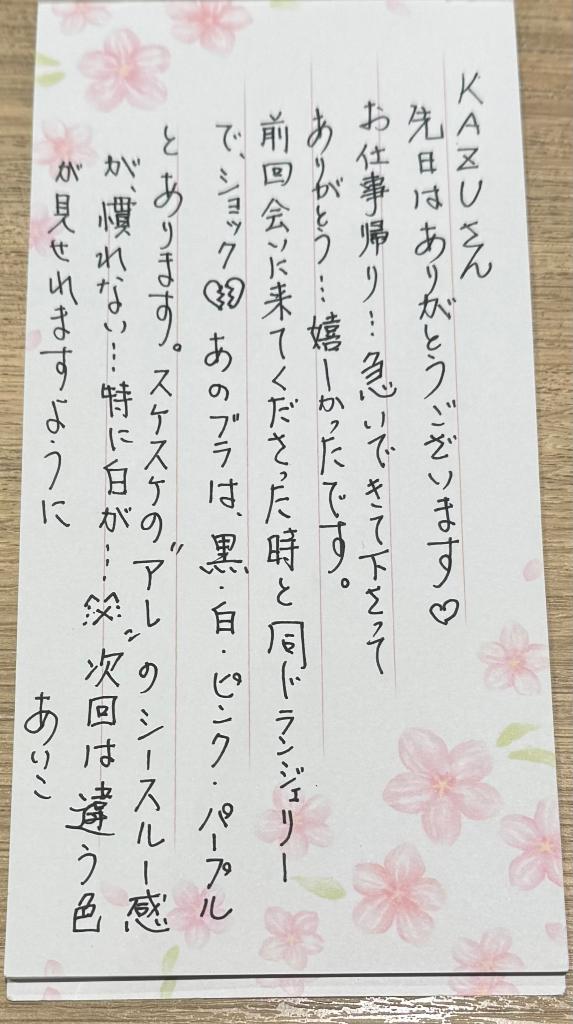 KAZUさん
先日はありがとうございます♡
お仕事帰り…急いできて下さって
ありがとう…嬉しかったです。
前回会いに来てくださった時と同ドランジェリー
で、ショック💔あのブラは、黒・白・ピンク・パープル
とあります。スケスケの"アレ"のシースルー感
が、慣れない…特に白が… 次回は違う色
が見せれますように
あいこ